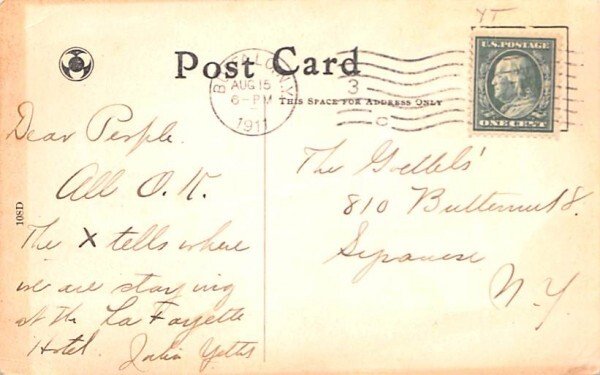 Post Card
BUFFALO, N.Y.
AUG 15
6-PM
1911
3
C
THIS SPACE FOR ADDRESS ONLY
U.S. POSTAGE
ONE CENT
108D
Dear People.
All O.K.
The X tells where
we are staying
at the La Fayette
Hotel. Julia
The
810 Butternut St.
Syracuse
N.Y.